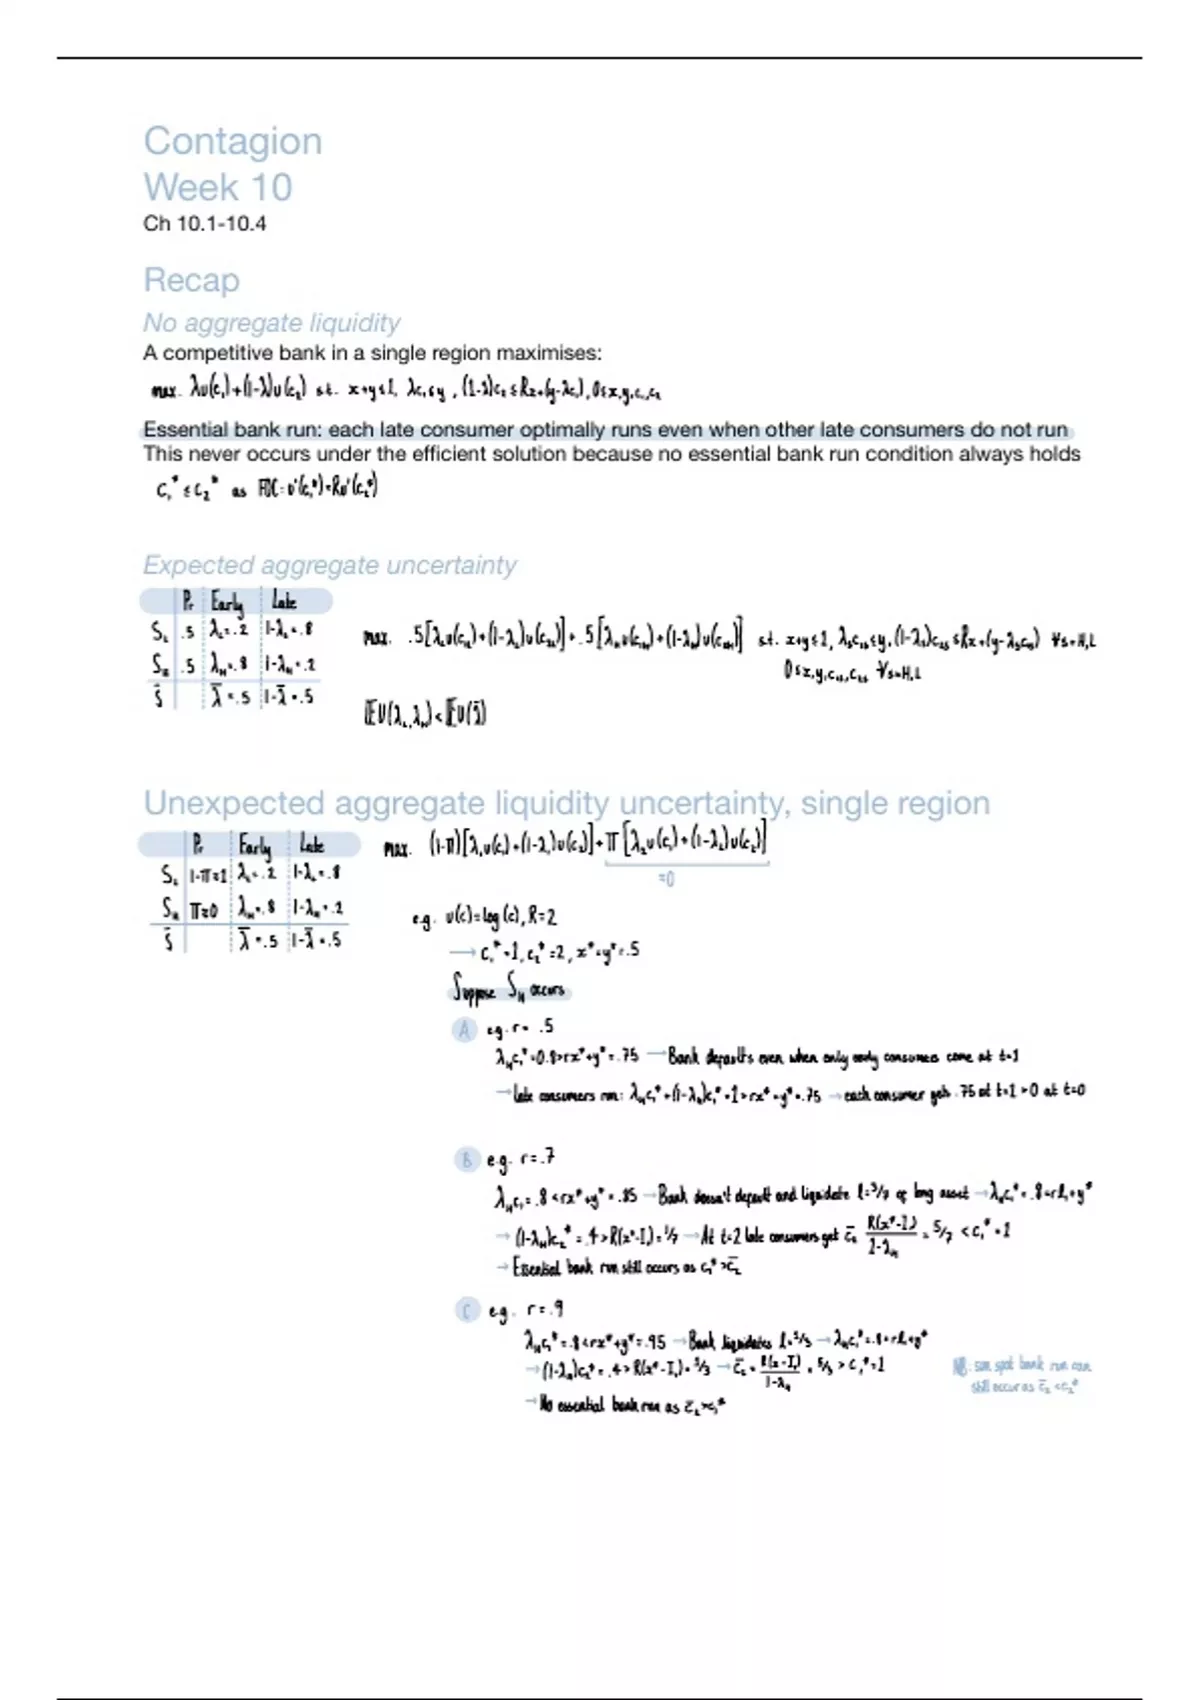 Contagion
Week 10
Ch 10.1-10.4
Recap
No aggregate liquidity
A competitive bank in a single region maximises:
max. λu(c₁)+(1-λ)u(c₂) s.t. x+y≤1, λc₁≤y, (1-λ)c₂≤Rx+(y-λc₁), 0≤x,y,c₁,c₂
Essential bank run: each late consumer optimally runs even when other late consumers do not run
This never occurs under the efficient solution because no essential bank run condition always holds
c₁*≤c₂* as FOC: u'(c₁*)=Ru'(c₂*)
Expected aggregate uncertainty
Pr Early Late
S_L .5 λ_L=.2 1-λ_L=.8
S_H .5 λ_H=.8 1-λ_H=.2
S̄ λ̄=.5 1-λ̄=.5
max. .5[λ_Lu(c₁L)+(1-λ_L)u(c₂L)]+.5[λ_Hu(c₁H)+(1-λ_H)u(c₂H)] s.t. x+y≤1, λ_Sc₁S≤y, (1-λ_S)c₂S≤Rx+(y-λ_Sc₁S) ∀s=H,L
0≤x,y,c₁S,c₂S ∀s=H,L
EU(λ_L,λ_H)<EU(λ̄)
Unexpected aggregate liquidity uncertainty, single region
Pr Early Late
S_L 1-π≈1 λ_L=.2 1-λ_L=.8
S_H π≈0 λ_H=.8 1-λ_H=.2
S̄ λ̄=.5 1-λ̄=.5
max. (1-π)[λ u(c₁)+(1-λ )u(c₂)]+π[λ u(c₁)+(1-λ )u(c₂)]
=0
e.g. u(c)=log(c), R=2
→ c₁*=1, c₂*=2, x*=y*=.5
Suppose S_H occurs
A e.g. r= .5
λ_Hc₁*=0.8>rx*+y*=.75 → Bank defaults even when only early consumers come at t=1
→ Late consumers run: λ_Hc₁*+(1-λ_H)c₁*=1>rx*+y*=.75 → each consumer gets .75 at t=1 > 0 at t=0
B e.g. r=.7
λ_Hc₁=.8<rx*+y*=.85 → Bank doesn't default and liquidate l=3/7 of long asset → λ_Hc₁*=.8=rl+y*
→ (1-λ_H)c₂*=.4>R(x*-l)=1/7 → At t=2 late consumers get c̄₂ R(x*-l)/1-λ_H = 5/7 < c₁*=1
→ Essential bank run still occurs as c₁*>c̄₂
C e.g. r=.9
λ_Hc₁*=.8<rx*+y*=.95 → Bank liquidates l=1/3 → λ_Hc₁*=.8=rl+y*
→ (1-λ_H)c₂*=.4>R(x*-l)=1/3 → c̄₂= R(x-l)/1-λ_H = 5/3 > c₁*=1
→ No essential bank run as c̄₂>c₁*
NB: sun spot bank run can
still occur as c̄₂<c₂*